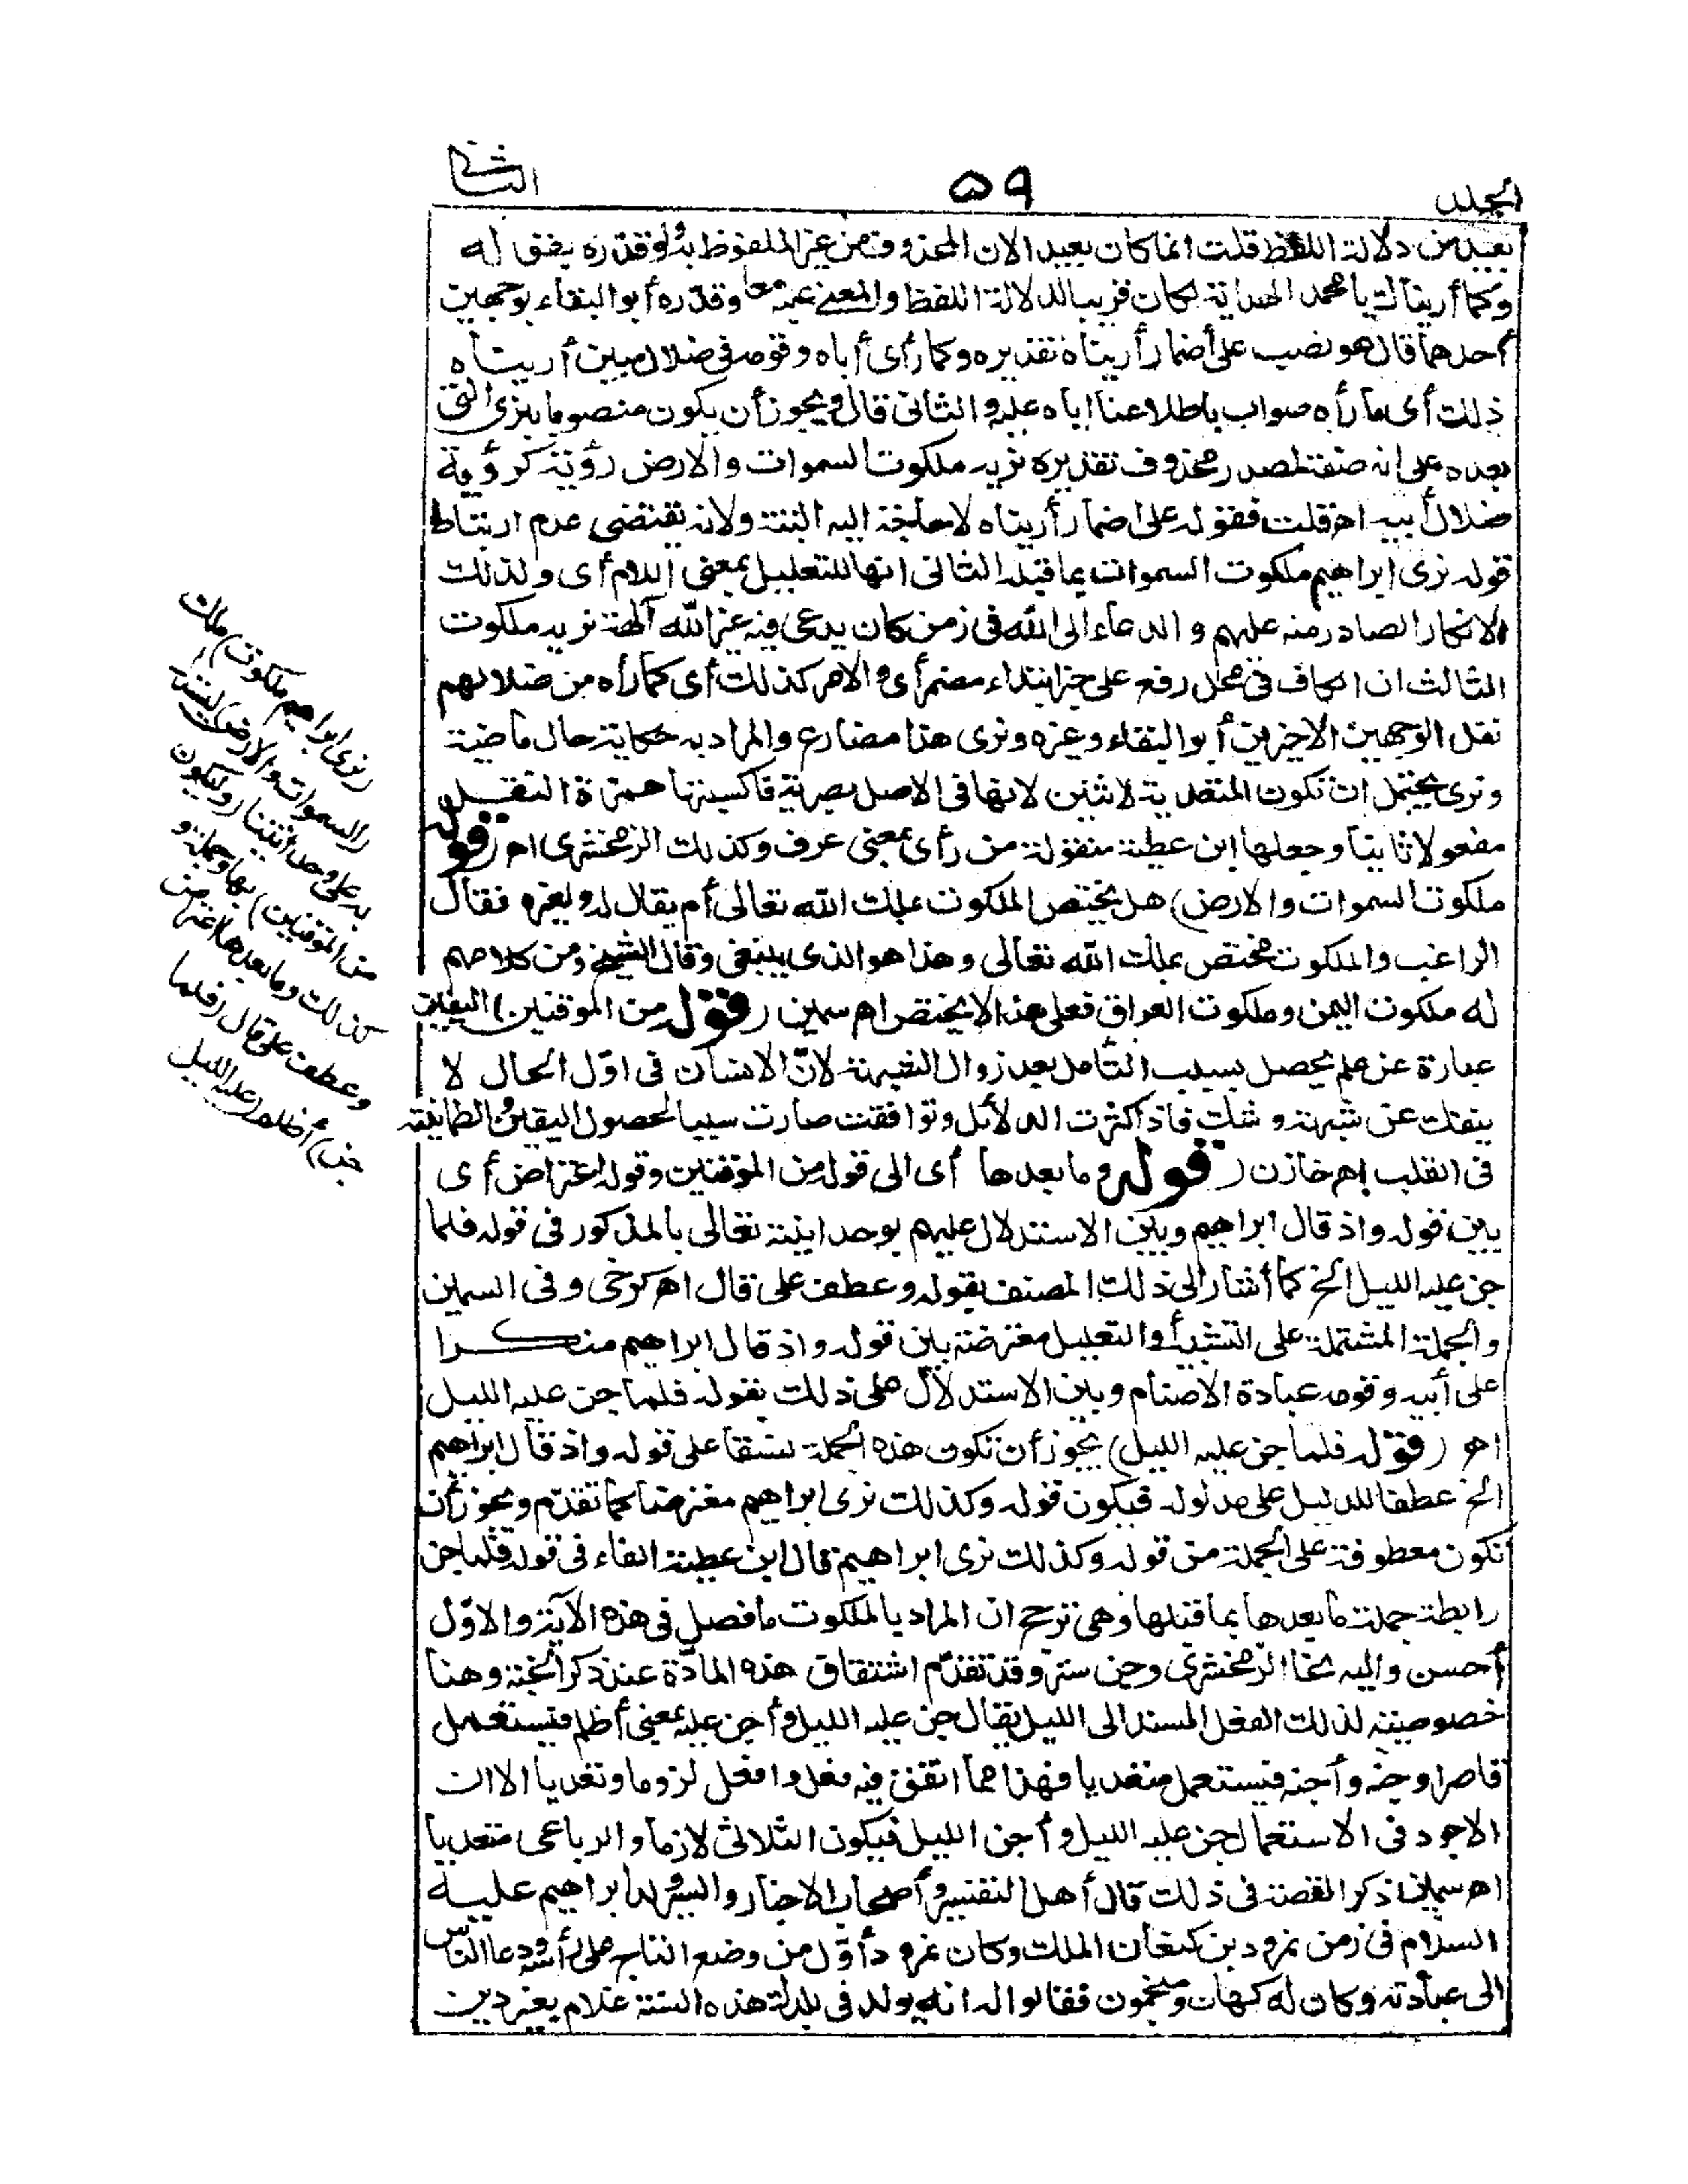 المجلد
٥٩
الثانى
بعيد من دلالة اللفظ قلت انما كان بعيدا لان المحذوف من غير الملفوظ به ولو قدره بقوله
وكما أريناك يا محمد الهداية لكان قريبا لدلالة اللفظ والمعنى عليه معا وقدّره أبو البقاء بوجهين
أحدهما قال هو نصب على أضمار أريناه تقديره وكما رأى أباه وقومه فى ضلال مبين أريناه
ذلك أى ما رأه صواب باطلاعنا اياه عليه والثانى قال ويجوز أن يكون منصوبا بنرى التى
بعده على انه صفة لمصدر محذوف تقديره نريه ملكوت السموات والارض رؤية كرؤية
ضلال أبيه اهـ قلت فقوله على اضمار أريناه لا حاجة اليه البتة ولانه يقتضى عدم ارتباط
قوله نرى ابراهيم ملكوت السموات بما قبله الثانى انها للتعليل بمعنى اللام أى ولذلك
الانكار الصادر منه عليهم والدعاء الى الله فى زمن كان يدعى فيه غير الله آلهة نريه ملكوت
الثالث ان الكاف فى محل رفع على خبر ابتداء مضمر أى والامر كذلك أى كما رأه من ضلالهم
نقل الوجهين الاخيرين أبو البقاء وغيره ونرى هذا مضارع والمراد به حكاية حال ماضية
ونرى يحتمل ان تكون المتعدية لاثنين لانها فى الاصل بصرية فاكسبتها همزة النقل
مفعولا ثانيا وجعلها ابن عطية منقولة من رأى بمعنى عرف وكذلك الزمخشرى اهـ (قوله
ملكوت السموات والارض) هل يختص الملكوت بملك الله تعالى أم يقال له ولغيره فقال
الراغب والملكوت مختص بملك الله تعالى وهذا هو الذى ينبغى وقال الشيخ ومن كلامهم
له ملكوت اليمن وملكوت العراق فعلى هذا لا يختص اهـ سمين (قوله من الموقنين) اليقين
عبارة عن علم يحصل بسبب التأمل بعد زوال الشبهة لانّ الانسان فى اوّل الحال لا
ينفك عن شبهة وشك فاذا كثرت الدلائل وتوافقت صارت سببا لحصول اليقين والطمانينة
فى القلب اهـ خازن (قوله وما بعدها أى الى قوله من الموقنين وقوله اعتراض أى
بين قوله واذ قال ابراهيم وبين الاستدلال عليهم بوحدانيته تعالى بالمذكور فى قوله فلما
جن عليه الليل الخ كما أشار الى ذلك المصنف بقوله وعطف على قال اهـ كرخى وفى السمين
والجملة المشتملة على التشبيه أو التعليل معترضة بين قوله واذ قال ابراهيم منكرا
على أبيه وقومه عبادة الاصنام وبين الاستدلال على ذلك بقوله فلما جن عليه الليل
اهـ (قوله فلما جن عليه الليل) يجوز أن تكون هذه الجملة نسقا على قوله واذ قال ابراهيم
الخ عطفا للدليل على مدلوله فيكون قوله وكذلك نرى ابراهيم معترضا كما تقدّم ويجوز أن
تكون معطوفة على الجملة من قوله وكذلك نرى ابراهيم قال ابن عطية الفاء فى قوله فلما جن
رابطة جملة ما بعدها بما قبلها وهى ترجح ان المراد بالملكوت ما فصل فى هذه الآية والاوّل
أحسن واليه نحا الزمخشرى وجن ستر وقد تقدّم اشتقاق هذه المادّة عند ذكر الجنة وهنا
خصوصية لذلك الفعل المسند الى الليل يقال جن عليه الليل وأجن عليه بمعنى أظلم فيستعمل
قاصرا وجنه وأجنه فيستعمل متعديا فهذا مما اتفق فيه فعل وافعل لزوما وتعديا الا ان
الاجود فى الاستعمال جن عليه الليل وأجن الليل فيكون الثلاثى لازما والرباعى متعديا
اهـ سمين ذكر القصة فى ذلك قال أهل التفسير وأصحاب الاخبار والسير ولد ابراهيم عليه
السلام فى زمن نمرود بن كنعان الملك وكان نمرود أوّل من وضع التاج على رأسه ودعا الناس
الى عبادته وكان له كهان ومنجمون فقالوا له انه يولد فى بلدك هذه السنة غلام يغير دين
(نرى ابراهيم ملكوت) ملك
(السموات والارض) ليستدل
به على وحدانيتنا (وليكون
من الموقنين) بها وجملة و
كذلك وما بعدها اعتراض
وعطف على قال (فلما
جن) أظلم (عليه الليل